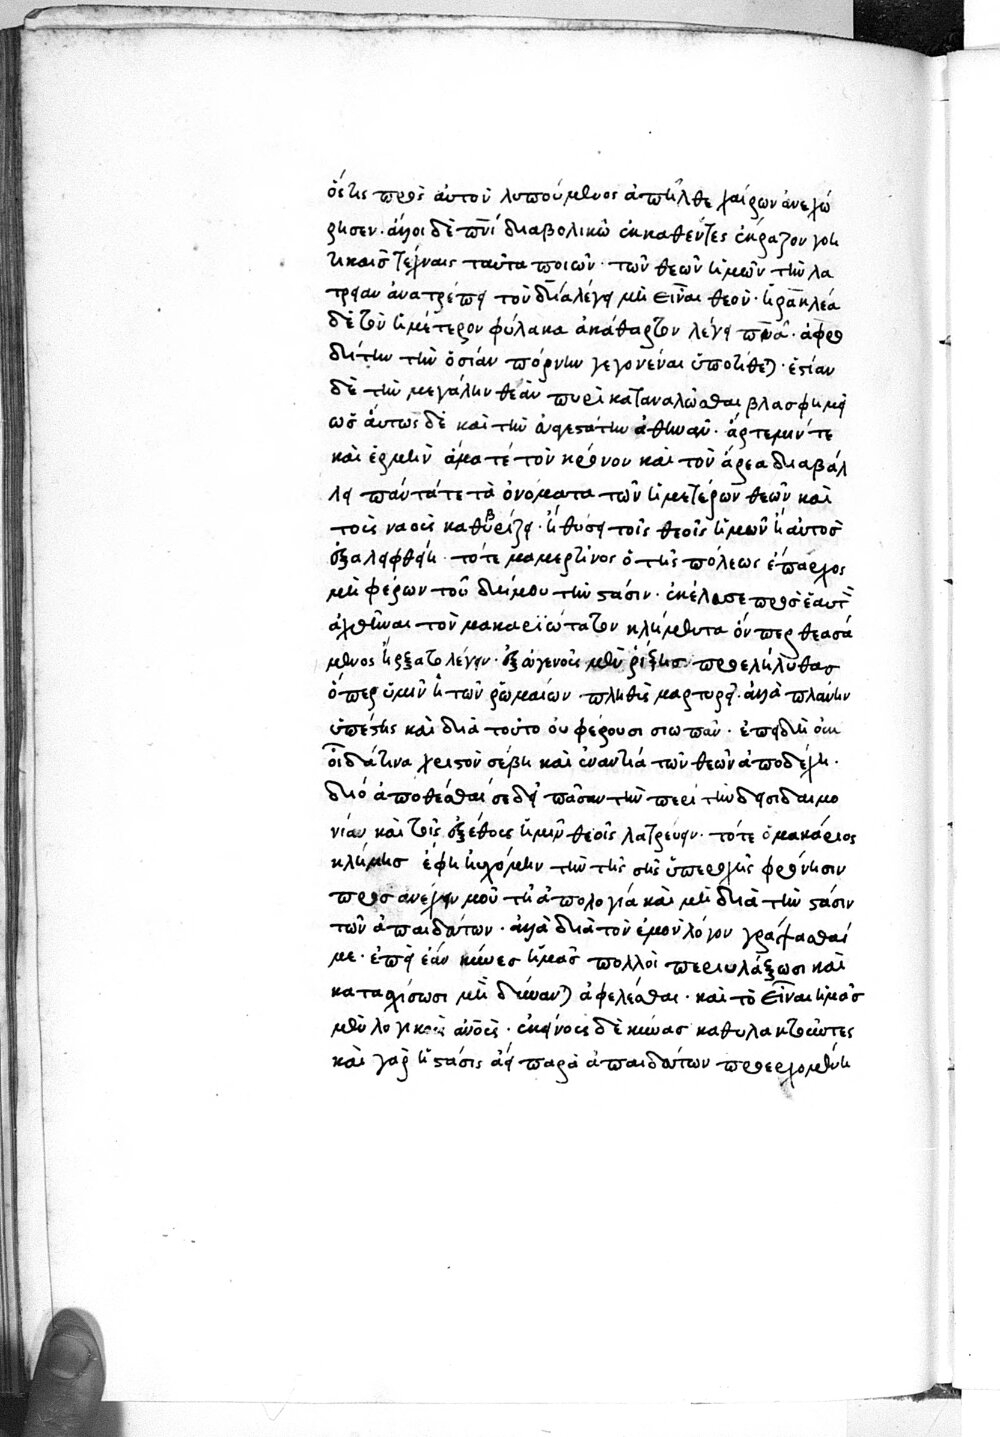 ὅστις πρὸς αὐτὸν λυπούμενος ἀπῆλθε χαίρων ἀνεχώ
ρησεν· ἄλλοι δὲ πνι διαβολικῶ ἐκκαθέντες ἔκραζον γοη
τικαῖς τέχναις ταῦτα ποιῶν· τῶν θεῶν ἡμῶν τὴν λα
τρείαν ἀνατρέπει τὸν δία λέγει μὴ εἶναι θεόν· ἡρακλέα
δὲ τὸν ἡμέτερον φύλακα ἀκάθαρτον λέγει πνα· ἀφρο
δίτην τὴν ὁσίαν πόρνην γεγονέναι ὑποτίθεται· ἑστίαν
δὲ τὴν μεγάλην θεὰν πυρὶ καταναλῶσθαι βλασφημεῖ
ὡσαύτως δὲ καὶ τὴν ἁγιεστάτην ἀθηνᾶν· ἄρτεμίν τε
καὶ ἑρμῆν ἅμα τε τὸν κρόνον καὶ τὸν ἄρεα διαβάλ
λει πάντα τε τὰ ὀνόματα τῶν ἡμετέρων θεῶν καὶ
τοὺς ναοὺς καθυβρίζει· ἢ θύσει τοῖς θεοῖς ἡμῶν ἢ αὐτὸς
ἐξαλειφθείη· τότε μαμερτῖνος ὁ τῆς πόλεως ἔπαρχος
μὴ φέρων τοῦ δήμου τὴν στάσιν· ἐκέλευσε πρὸς ἑαυτὸν
ἀχθῆναι τὸν μακαριώτατον κλήμεντα ὅν περ θεασά
μενος ἤρξατο λέγειν· ἐξ εὐγενοῦς μὲν ῥίζης προελήλυθας
ὅπερ ὑμῖν ἡ τῶν ῥωμαίων πληθὺς μαρτυρεῖ· ἀλλὰ πλάνην
ὑπέστης καὶ διὰ τοῦτο οὐ φέρουσι σιωπᾶν· ἐπειδὴ οὐκ
οἶδά τινα χριστὸν σέβῃ καὶ ἐναντία τῶν θεῶν ἀποδέχῃ·
διὸ ἀποθέσθαι σε δεῖ πᾶσαν τὴν περὶ τὴν δεισιδαιμο
νίαν καὶ τοῖς ἐξ ἔθους ἡμῖν θεοῖς λατρεύειν· τότε ὁ μακάριος
κλήμης ἔφη ηὐχόμην τὴν τῆς σῆς ὑπεροχῆς φρόνησιν
προσανέχειν μου τῆ ἀπολογία καὶ μὴ διὰ τὴν στάσιν
τῶν ἀπαιδεύτων· ἀλλὰ διὰ τὸν ἐμὸν λόγον γράψασθαί
με· ἐπεὶ ἐὰν κύνες ἡμᾶς πολλοὶ περιυλάξωσι καὶ
καταχίσωσι μὴ δύνανται ἀφελέσθαι· καὶ τὸ εἶναι ἡμᾶς
μὲν λογικοὺς ἀνους· ἐκείνους δὲ κύνας καθυλακτοῦντες
καὶ γὰρ ἡ στάσις ἀεὶ παρὰ ἀπαιδεύτων προερχομένη